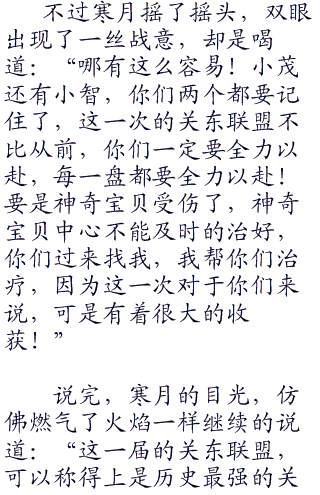 不过寒月摇了摇头，双眼
出现了一丝战意，却是喝
道：“哪有这么容易！小茂
还有小智，你们两个都要记
住了，这一次的关东联盟不
比从前，你们一定要全力以
赴，每一盘都要全力以赴！
要是神奇宝贝受伤了，神奇
宝贝中心不能及时的治好，
你们过来找我，我帮你们治
疗，因为这一次对于你们来
说，可是有着很大的收
获！”
说完，寒月的目光，仿
佛燃气了火焰一样继续的说
道：“这一届的关东联盟，
可以称得上是历史最强的关